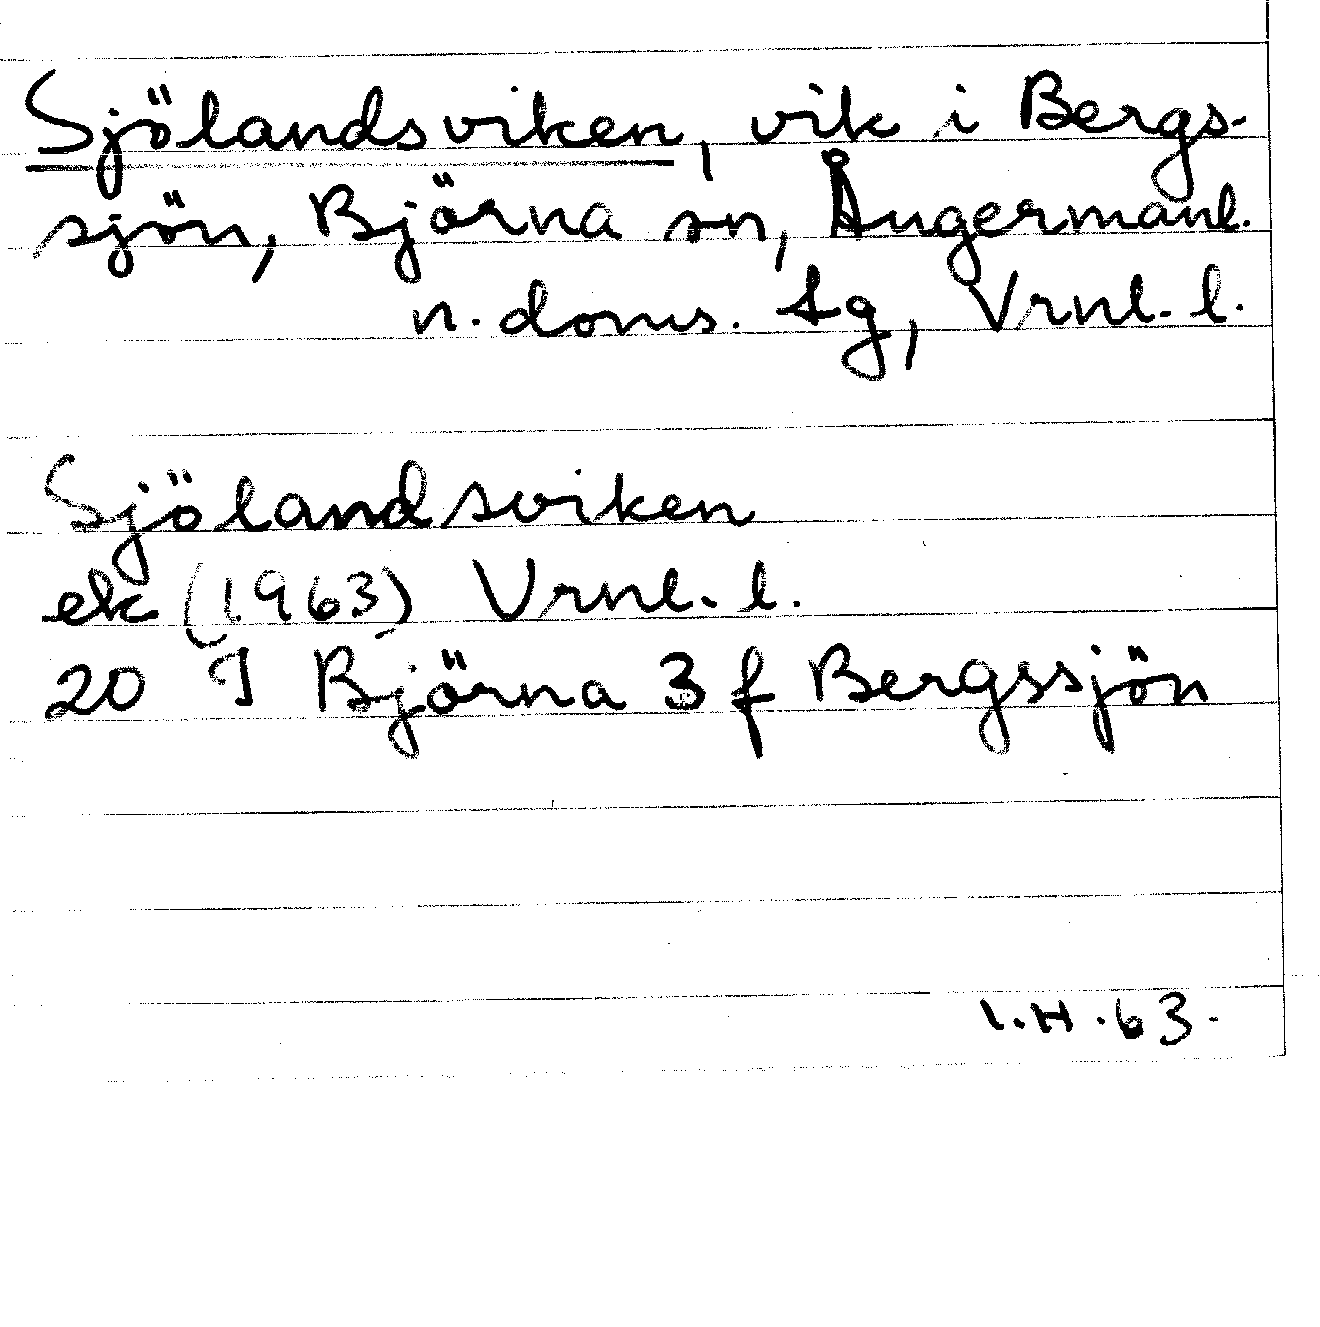 Sjölandsviken, vik i Bergs-
sjön, Björna sn, Ångermanl.
n. doms. sg, Vrnl. l.
Sjölandsviken
ek (1963) Vrnl. l.
20 I Björna 3 f Bergssjön
I.H.63.